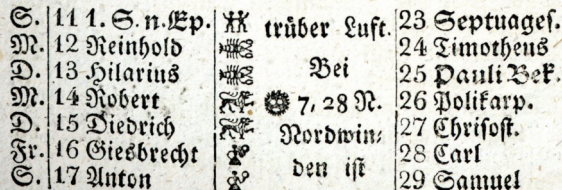 S. 11 1. S. n. Ep. trüber Luft. 23 Septuages.
M. 12 Reinhold 24 Timotheus
D. 13 Hilarius Bei 25 Pauli Bek.
M. 14 Robert 7, 28 N. 26 Polikarp.
D. 15 Diedrich Nordwin- 27 Chrisost.
Fr. 16 Giesbrecht den ist 28 Carl
S. 17 Anton 29 Samuel